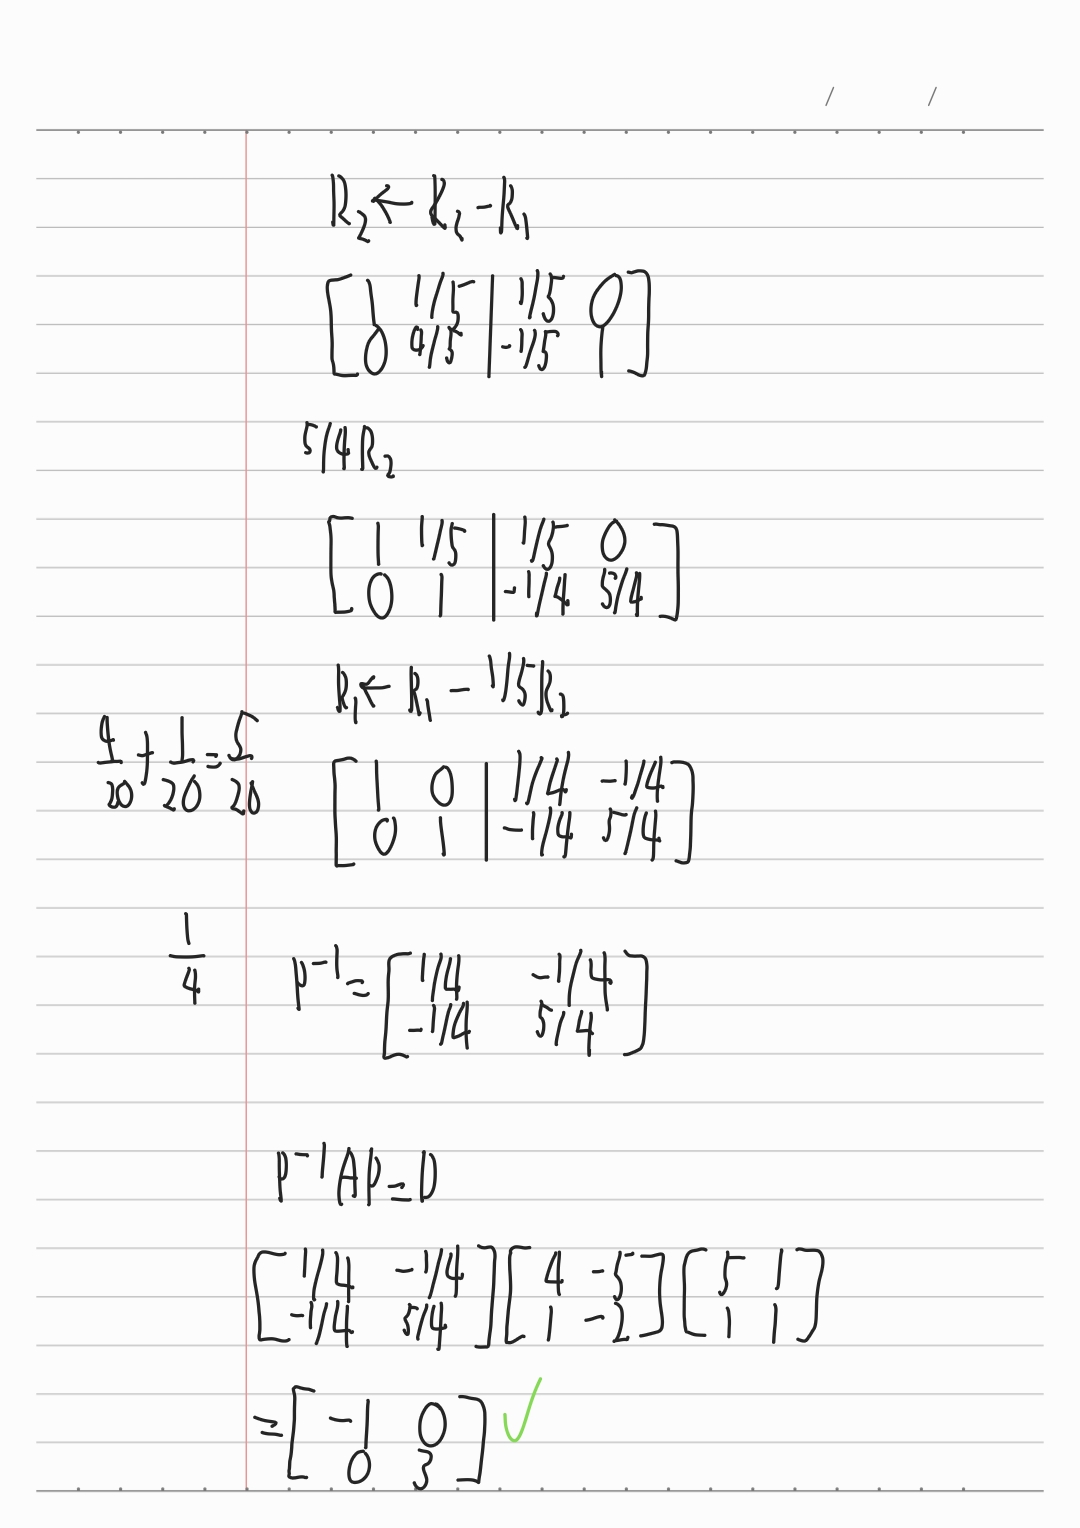 / /
R₂ ← R₂ - R₁
[ 1 1/5 | 1/5 0 ]
[ 0 4/5 | -1/5 1 ]
5/4 R₂
[ 1 1/5 | 1/5 0 ]
[ 0 1 | -1/4 5/4 ]
R₁ ← R₁ - 1/5 R₂
4/20 + 1/20 = 5/20
[ 1 0 | 1/4 -1/4 ]
[ 0 1 | -1/4 5/4 ]
1/4
P⁻¹ = [ 1/4 -1/4 ]
[ -1/4 5/4 ]
P⁻¹AP = D
[ 1/4 -1/4 ] [ 4 -5 ] [ 5 1 ]
[ -1/4 5/4 ] [ 1 -2 ] [ 1 1 ]
= [ -1 0 ] ✓
[ 0 3 ]